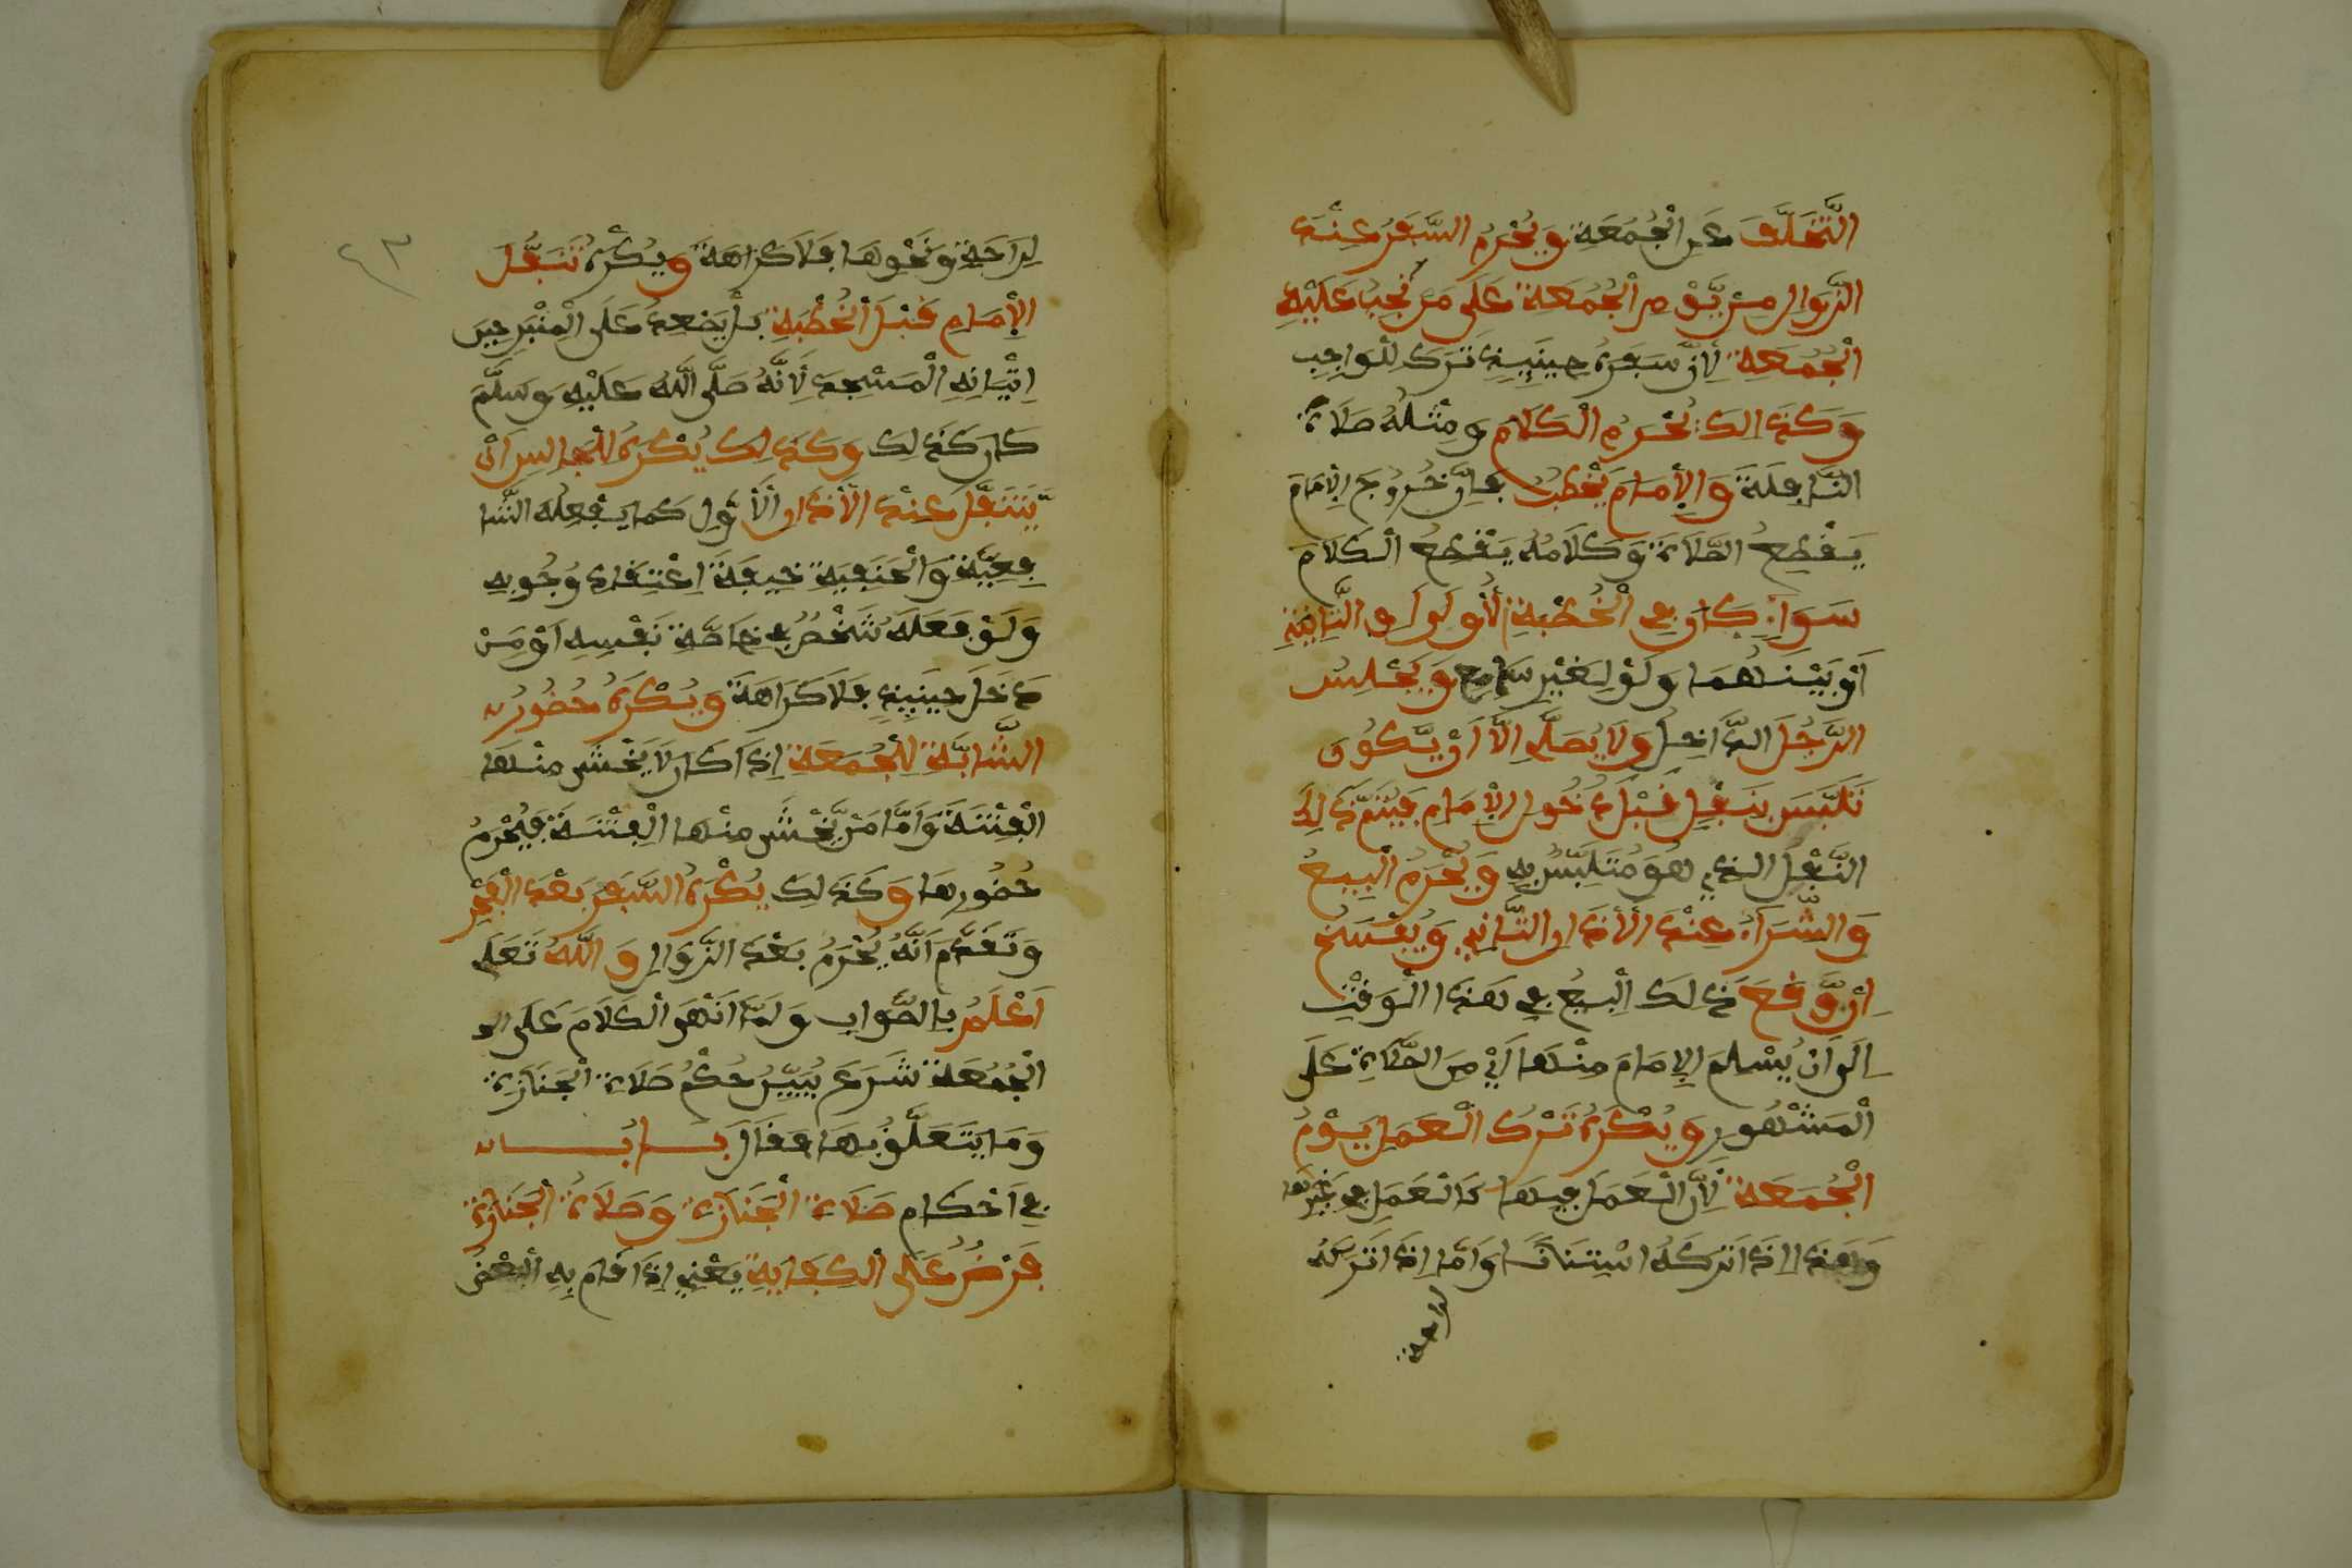 التَّخَلُّفَ عَنِ الْجُمُعَةِ وَيُحْرَمُ السَّفَرُ عِنْدَ
الزَّوَالِ مِنْ يَّوْمِ الْجُمُعَةِ عَلَى مَن تَجِبُ عَلَيْهِ
الْجُمُعَةِ لِأَنَّ سَفَرَهُ حِينَئِذٍ تَرَكَ لِلْوَاجِبِ
وَكَذَالِكَ تُحْرَمُ الْكَلَامَ وَمِثْلُهُ صَلَاةُ
النَّافِلَةَ وَالْإِمَامَ يَخْطُبُ فَإِنَّ خُرُوجَ الْإِمَامَ
يَقْطَعُ الصَّلَاةَ وَكَلَامُهُ يَقْطَعُ الْكَلَامَ
سَوَاءٌ كَانَ فِي الْخُطْبَةِ الْأُولَى أَوِ الثَّانِيَةِ
أَوْ بَيْنَهُمَا وَلَوْ لِغَيْرِ سَامِعٍ وَيَجْلِسُ
الرَّجُلَ الدَّاخِلَ وَلَا يُصَلِّ إِلَّا أَنْ يَّكُونَ
تَلَبَّسَ بِنَفْلٍ قَبْلَ دُخُولِ الْإِمَامِ فَيُتِمُّ ذَالِكَ
النَّفْلَ الَّذِي هُوَ مُتَلَبِّسٌ بِهِ وَيُحْرَمُ الْبَيْعُ
وَالشِّرَاءُ عِنْدَ الْأَذَانِ الثَّانِي وَيُفْسَخُ
إِنْ وَّقَعَ ذَلِكَ الْبَيْعُ فِي هَذَا الْوَقْتِ
إِلَى أَنْ يُسْلِمَ الْإِمَامَ مِنْهَا أَيْ مِنَ الصَّلَاةِ عَلَى
الْمَشْهُورِ وَيُكْرَهُ تَرْكُ الْعَمَلِ يَوْمُ
الْجُمُعَةِ لِأَنَّ الْعَمَلَ فِيهَا كَالْعَمَلِ فِي غَيْرِهَا
وَهَذَا إِذَا تَرَكَهُ اسْتِنَانًا وَأَمَّا إِذَا تَرَكَهُ
لِرَاحَةٍ
٤٣
لِرَاحَةٍ وَنَحْوِهَا فَلَا كَرَاهَةَ وَيُكْرَهُ تَنَفُّلُ
الْإِمَامِ قَبْلَ الْخُطْبَةِ بَلْ يَصْعِدُ عَلَى الْمِنْبَرِ حِينَ
إِتْيَانِهِ الْمَسْجِدَ لِأَنَّهُ صَلَّى اللَّهُ عَلَيْهِ وَسَلَّمَ
كَانَ كَذَلِكَ وَكَذَلِكَ يُكْرَهُ لِلْجَالِسِ أَنْ
يَّتَنَفَّلَ عِنْدَ الْأَذَانِ الْأَوَّلِ كَمَا يَفْعَلُهُ الشَّا
فِعِيَّةُ وَالْحَنَفِيَةُ خِيفَةَ اعْتِقَادِ وُجُوبِهِ
وَلَوْ فَعَلَهُ شَخْصٌ فِي خَاصَّةِ نَفْسِهِ أَوْ مَنْ
دَخَلَ حِينَئِذٍ فَلَا كَرَاهَةَ وَيُكْرَهُ حُضُورُ
الشَّابَّةِ لِلْجُمَعَةِ إِذَا كَانَ لَا يَخْشَى مِنْهَا
الْفِتْنَةَ وَأَمَّا مَنْ يَّخْشَى مِنْهَا الْفِتْنَةَ فَيُحْرَمُ
حُضُورُهَا وَكَذَلِكَ يُكْرَهُ السَّفَرَ بَعْدَ الْفَجْرِ
وَتَقَدَّمَ أَنَّهُ يُحْرَمُ بَعْدَ الزَّوَالِ وَاللَّهُ تَعَلَى
أَعْلَمُ بِالصَّوَابِ وَلَمَّا أَنْهَى الْكَلَامَ عَلَى
الْجُمُعَةِ شَرَعَ يُبَيِّنُ حُكْمَ صَلَاةِ الْجَنَازَةِ
وَمَا يَتَعَلَّقُ بِهَا فَقَالَ بَابُ
فِي أَحْكَامِ صَلَاةِ الْجَنَازَةِ وَصَلَاةُ الْجَنَازَةِ
فَرْضٌ عَلَى الْكِفَايَةِ يَعْنِي إِذَا قَامَ بِهِ الْبَعْضُ